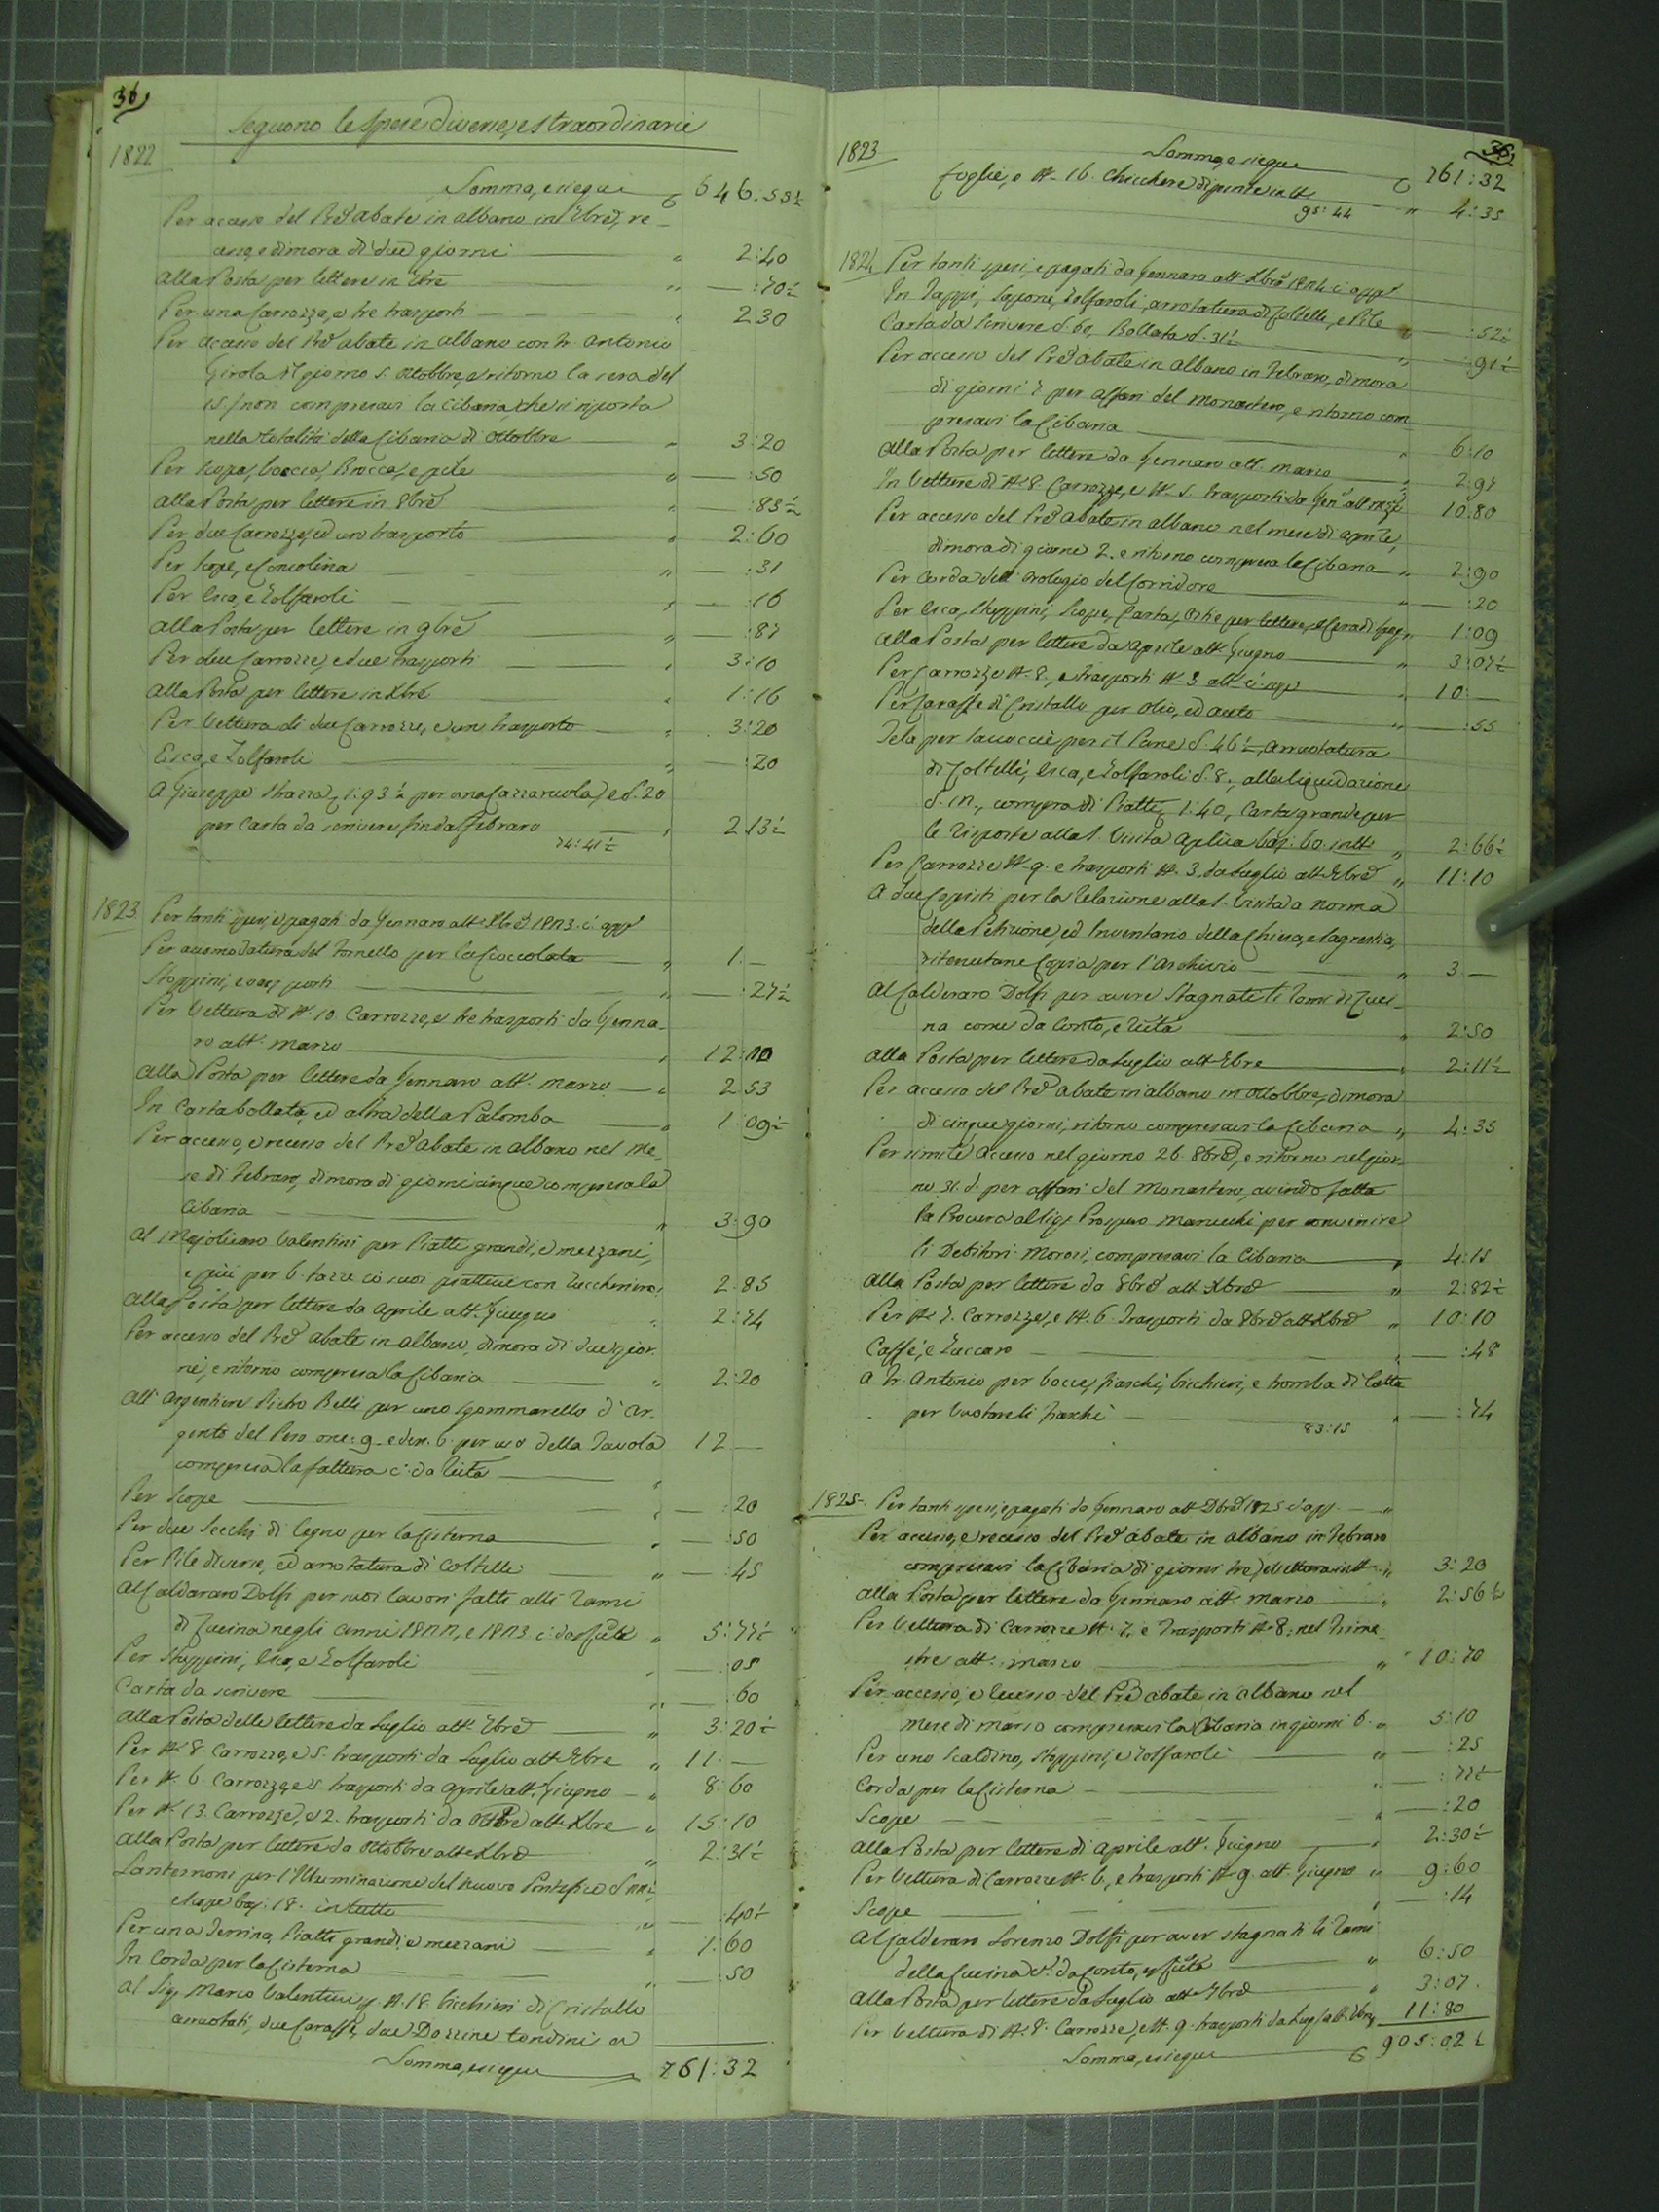 36
Seguono le Spese diverse, e straordinarie
1822
Somma, e siegue 646:55½
Per accesso del Pre abate in albano in 7bre, re-
cesso, e dimora di due giorni " 2:40
Alla Posta per lettere in 7bre " :70½
Per una Carrozza, e tre trasporti " 2 30
Per accesso del Pre abate in albano con fr. Antonio
Girola il giorno 5. Ottobbre, e ritorno la sera del
15 (non compresavi la Cibaria che si riporta
nella totalità della Cibaria di Ottobbre " 3:20
Per Scopa, boccia, Brocca, e pile " :50
Alla Posta per lettere in 8bre " :85½
Per due Carrozze, ed un trasporto " 2:60
Per Scope, e Concolina " :31
Per Esca, e Zolfaroli " :16
Alla Posta per lettere in 9bre " :87
Per due Carrozze, e due trasporti " 3:10
Alla Posta per lettere in Xbre " 1:16
Per Vettura di due Carrozze, e un trasporto " 3:20
Esca, e Zolfaroli " :20
A Giuseppe Strazza 1:93½ per una Cazzaruola, e d. 20
per Carta da scrivere fin da Febraro " 2 13½
74:41½
1823 Per tanti spesi, e pagati da Gennaro att. Xbre 1823. c. app.
Per accomodatura del tornello per la Cioccolata " 1.—
Stoppini, e trasporti " :27½
Per Vettura di N. 10. Carrozze, e tre trasporti da Genna-
ro att. marzo " 12:10
Alla Posta per lettere da Gennaro att. marzo " 2 53
In Carta bollata, ed altra della Palomba " 1:09½
Per accesso, e recesso del Pre abate in albano nel me-
se di Febraro, dimora di giorni cinque compresa la
Cibaria " 3:90
Al Majolicaro Valentini per Piatti grandi, e mezzani,
e più per 6. tazze co suoi piattini con Zuccheriera 2:85
Alla Posta per lettere da Aprile att. Giugno " 2:74
Per accesso del Pre abate in albano, dimora di due gior-
ni, e ritorno compresa la Cibaria " 2:20
All' Argentiere Pietro Belli per uno sgommarello d' Ar-
gento del Peso onc: 9. e den. 6. per uso della Tavola 12 —
compresa la fattura c. da Ricta "
Per Scope " :20
Per due Secchi di legno per la Cisterna " :50
Per Pile diverse, ed arrotatura di Coltelli " :45
Al Caldararo Dolfi per suoi lavori fatti alli Rami
di Cucina negli anni 1822, e 1823. c. da Ricta " 5:77½
Per Stoppini, Esca, e Zolfaroli " :05
Carta da scrivere " :60
Alla Posta delle lettere da Luglio att. 7bre " 3:20½
Per N. 8. Carrozze, e 5. trasporti da Luglio att. 7bre " 11.—
Per N. 6. Carrozze, e 5. trasporti da Aprile att. Giugno " 8:60
Per N. 13. Carrozze, e 2. trasporti da Ottbre att. Xbre " 15:10
Alla Posta per lettere da Ottobbre att. Xbre " 2:31½
Lanternoni per l'Illuminazione del nuovo Pontefice d. 22½,
e Scope baj: 18. in tutto " :40½
Per una Terrina, Piatti grandi, e mezzani " 1:60
In Corda per la Cisterna " :50
Al Sig. Marco Valentini p. N. 18. bicchieri di Cristallo
arruotati, due Caraffe, due Dozzine tondini da
Somma, e siegue 761:32
36
1823
Somma, e siegue 761:32
foglie, e N. 16. Chicchere dipinte in tt. " 4:35
95:44
1824 Per tanti spesi, e pagati da Gennaro att. Xbre 1824 c. app.
In Tappi, Sapone, Zolfaroli, arrotatura di Coltelli, e Pile " :52½
Carta da Scrivere d. 60, Bollata d. 31½ " :91½
Per accesso del Pre abate in Albano in Febraro, dimora
di giorni 7. per affari del Monastero, e ritorno com-
presavi la Cibaria " 6:10
Alla Posta per lettere da Gennaro att. marzo " 2:97
In Vetture di N. 8. Carrozze, e N. 5. trasporti da Gen. att. mzo " 10:80
Per accesso del Pre Abate in albano nel mese di aprile,
dimora di giorni 2. e ritorno compresa la Cibaria " 2:90
Per Corda dell' Orologio del Corridore " :20
Per Esca, Stoppini, Scope, Carta, Ostie per lettere, e Cera di Spag. " 1:09
Alla Posta per lettere da Aprile att. Giugno " 3:07½
Per Carrozze N. 8., e trasporti N. 3. att. c. app. " 10:—
Per Caraffe di Cristallo per olio, ed aceto " :55
Tela per Saccoccie per il Pane d. 46½, arruotatura
di Coltelli, Esca, e Zolfaroli d. 8., alla liquidazione
d. 12., compra di Piatti 1:40, Carta grande per
le risposte alla S. Visita Aplica baj: 60. in tt. " 2:66½
Per Carrozze N. 9. e trasporti N. 3. da Luglio att. 7bre " 11:10
A due Copisti per la Relazione alla S. Visita a norma
della Petizione, ed Inventario della Chiesa, e Sagrestia,
ritenutane Copia per l'Archivio " 3.—
Al Calderaro Dolfi per avere Stagnati li Rami di Cuci-
na come da Conto, e Ricta " 2:50
Alla Posta per lettere da Luglio att. 7bre " 2:11½
Per accesso del Pre Abate in albano in Ottobbre, dimora
di cinque giorni, ritorno compresavi la Cibaria " 4:35
Per simile accesso nel giorno 26. 8bre, e ritorno nel gior-
no 31. d. per affari del Monastero, avendo fatta
la Procura al Sig. Prospero Marucchi per convenire
li Debitori Morosi, compresavi la Cibaria " 4:15
Alla Posta per lettere da 8bre att. Xbre " 2:82½
Per N. 7. Carrozze, e N. 6. Trasporti da 8bre att. Xbre " 10:10
Caffè, e Zuccaro " :48
A fr. Antonio per bocce, fiaschi, bicchieri, e tromba di latta
per vuotare li fiaschi " :74
83:15
1825. Per tanti spesi, e pagati da Gennaro att. Dbre 1825 c. app. "
Per accesso, e recesso del Pre abate in albano in Febraro
compresavi la Cibaria di giorni tre, e Vettura in tt. " 3:20
Alla Posta per lettere da Gennaro att. Marzo " 2:56½
Per Vettura di Carrozze N. 7. e Trasporti N. 8. nel Trime-
stre att. marzo " 10:70
Per accesso, e recesso del Pre abate in albano nel
mese di marzo compresavi la Cibaria in giorni 6. " 5:10
Per uno Scaldino, Stoppini, e Zolfaroli " :25
Corda per la Cisterna " :77½
Scope " :20
Alla Posta per lettere di Aprile att. Giugno " 2:30½
Per Vettura di Carrozze N. 6., e trasporti N. 9. att. Giugno " 9:60
Scope " :14
Al Calderaro Lorenzo Dolfi per aver stagnati li Rami
della Cucina c. da Conto, e Ricta " 6:50
Alla Posta per lettere da Luglio att. 7bre " 3:07.
Per Vettura di N. 8. Carrozze, e N. 9. trasporti da Lug. att. 7bre 11:80
Somma, e siegue 905:02½